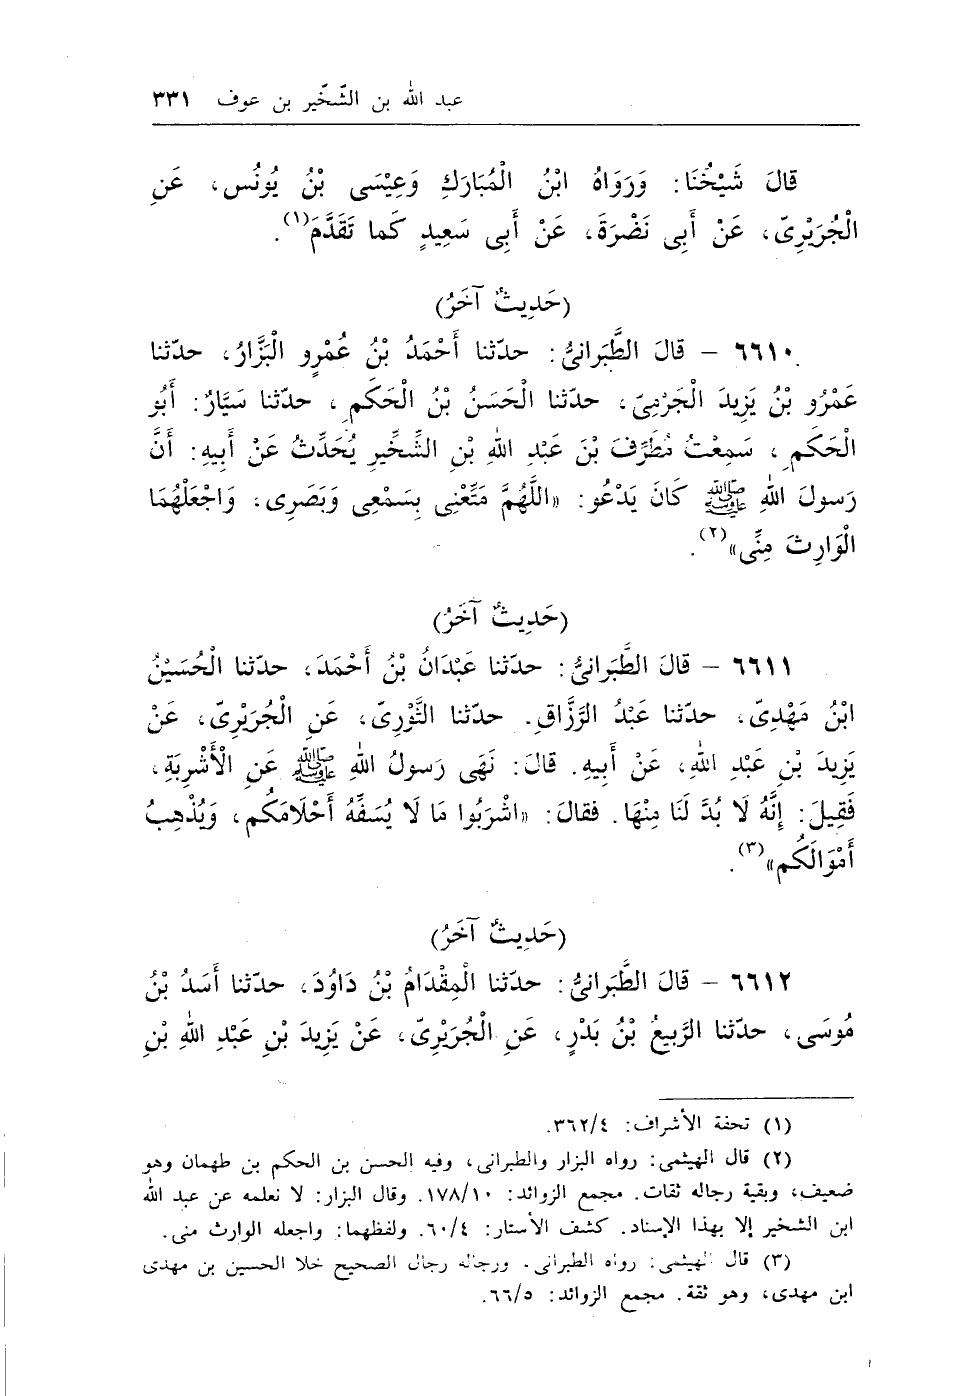 عبد الله بن الشّخّير بن عوف ٣٣١
قالَ شَيْخُنَا: وَرَوَاهُ ابْنُ الْمُبَارَكِ وَعِيْسَى بْنُ يُونُس، عَنِ
الْجُرَيْرِىّ، عَنْ أَبِى نَضْرَةَ، عَنْ أَبِى سَعِيدٍ كَما تَقَدَّمَ(١).
(حَدِيثٌ آخَرُ)
٦٦١٠ - قالَ الطَّبَرانىُّ: حدّثنا أَحْمَدُ بْنُ عُمْرٍو الْبَزَّارُ، حدّثنا
عَمْرُو بْنُ يَزِيدَ الْجَرْمِىّ، حدّثنا الْحَسَنُ بْنُ الْحَكَمِ، حدّثنا سَيَّارٌ: أَبُو
الْحَكَمِ، سَمِعْتُ مُطَرِّفَ بْنَ عَبْدِ اللهِ بْنِ الشِّخِّيرِ يُحَدِّثُ عَنْ أَبِيهِ: أَنَّ
رَسولَ اللهِ ﷺ كَانَ يَدْعُو: «اللَّهُمَّ مَتِّعْنِى بِسَمْعِى وَبَصَرِى، وَاجْعَلْهُمَا
الْوَارِثَ مِنِّى»(٢).
(حَدِيثٌ آخَرُ)
٦٦١١ - قالَ الطَّبَرانىُّ: حدّثنا عَبْدَانُ بْنُ أَحْمَدَ، حدّثنا الْحُسَيْنُ
ابْنُ مَهْدِىّ، حدّثنا عَبْدُ الرَّزَّاقِ. حدّثنا الثَّوْرِىّ، عَنِ الْجُرَيْرِىّ، عَنْ
يَزِيدَ بْنِ عَبْدِ اللهِ، عَنْ أَبِيهِ. قالَ: نَهَى رَسولُ اللهِ ﷺ عَنِ الْأَشْرِبَةِ،
فَقِيلَ: إِنَّهُ لَا بُدَّ لَنَا مِنْهَا. فقالَ: «اشْرَبُوا مَا لَا يُسَفِّهُ أَحْلَامَكُم، وَيُذْهِبُ
أَمْوَالَكُم»(٣).
(حَدِيثٌ آخَرُ)
٦٦١٢ - قالَ الطَّبَرانىُّ: حدّثنا الْمِقْدَامُ بْنُ دَاوُدَ، حدّثنا أَسَدُ بْنُ
مُوسَى، حدّثنا الرَّبِيعُ بْنُ بَدْرٍ، عَنِ الْجُرَيْرِىّ، عَنْ يَزِيدَ بْنِ عَبْدِ اللهِ بْنِ
(١) تحفة الأشراف: ٣٦٢/٤.
(٢) قال الهيثمى: رواه البزار والطبرانى، وفيه الحسن بن الحكم بن طهمان وهو
ضعيف، وبقية رجاله ثقات. مجمع الزوائد: ١٧٨/١٠. وقال البزار: لا نعلمه عن عبد الله
ابن الشخير إلا بهذا الإسناد. كشف الأستار: ٦٠/٤. ولفظهما: واجعله الوارث منى.
(٣) قال الهيثمى: رواه الطبرانى. ورجاله رجال الصحيح خلا الحسين بن مهدى
ابن مهدى، وهو ثقة. مجمع الزوائد: ٦٦/٥.